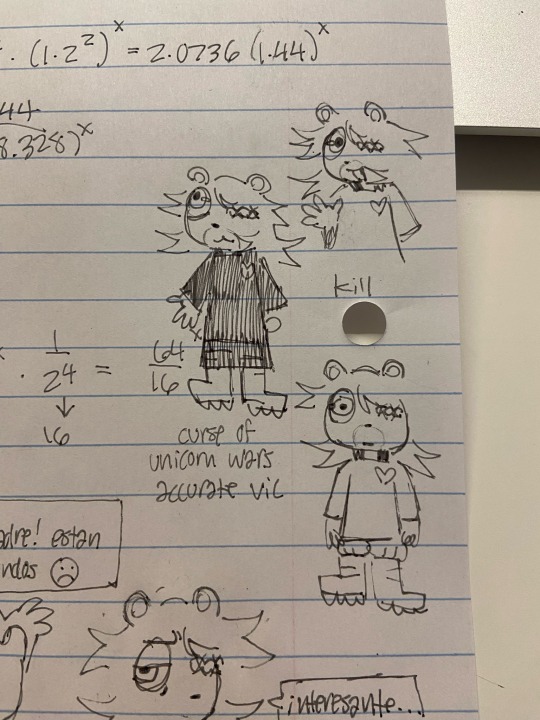 · (1·2²)ˣ = 2.0736 (1.44)ˣ
44
8.328)ˣ
kill
· 1/24 = 64/16
↓
16
curse of
unicorn wars
accurate vic
adre! estan
ndos
interesante...